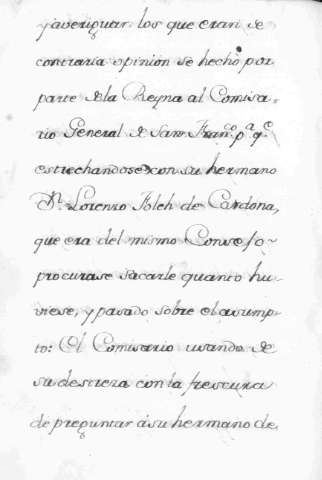 y averiguar los que eran de
contraria opinion se hecho por
parte de la Reyna al Comisa-
rio General de San Fran.co p.a q.e
estrechandose con su hermano
D.n Lorenzo Folch de Cardona,
que era del mismo Consejo
procurase sacarle quanto hu-
viese, y pasado sobre el asump-
to: El Comisario usando de
su destreza con la frescura
de preguntar à su hermano de